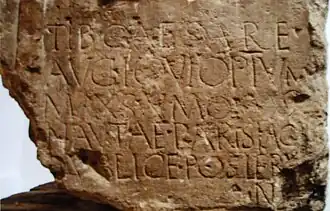 TIB·CAESARE·
AVG·IOVI OPTVM
MAXSVMO·S
NAVTAE·PARISIAC
PVBLICE POSIER
N